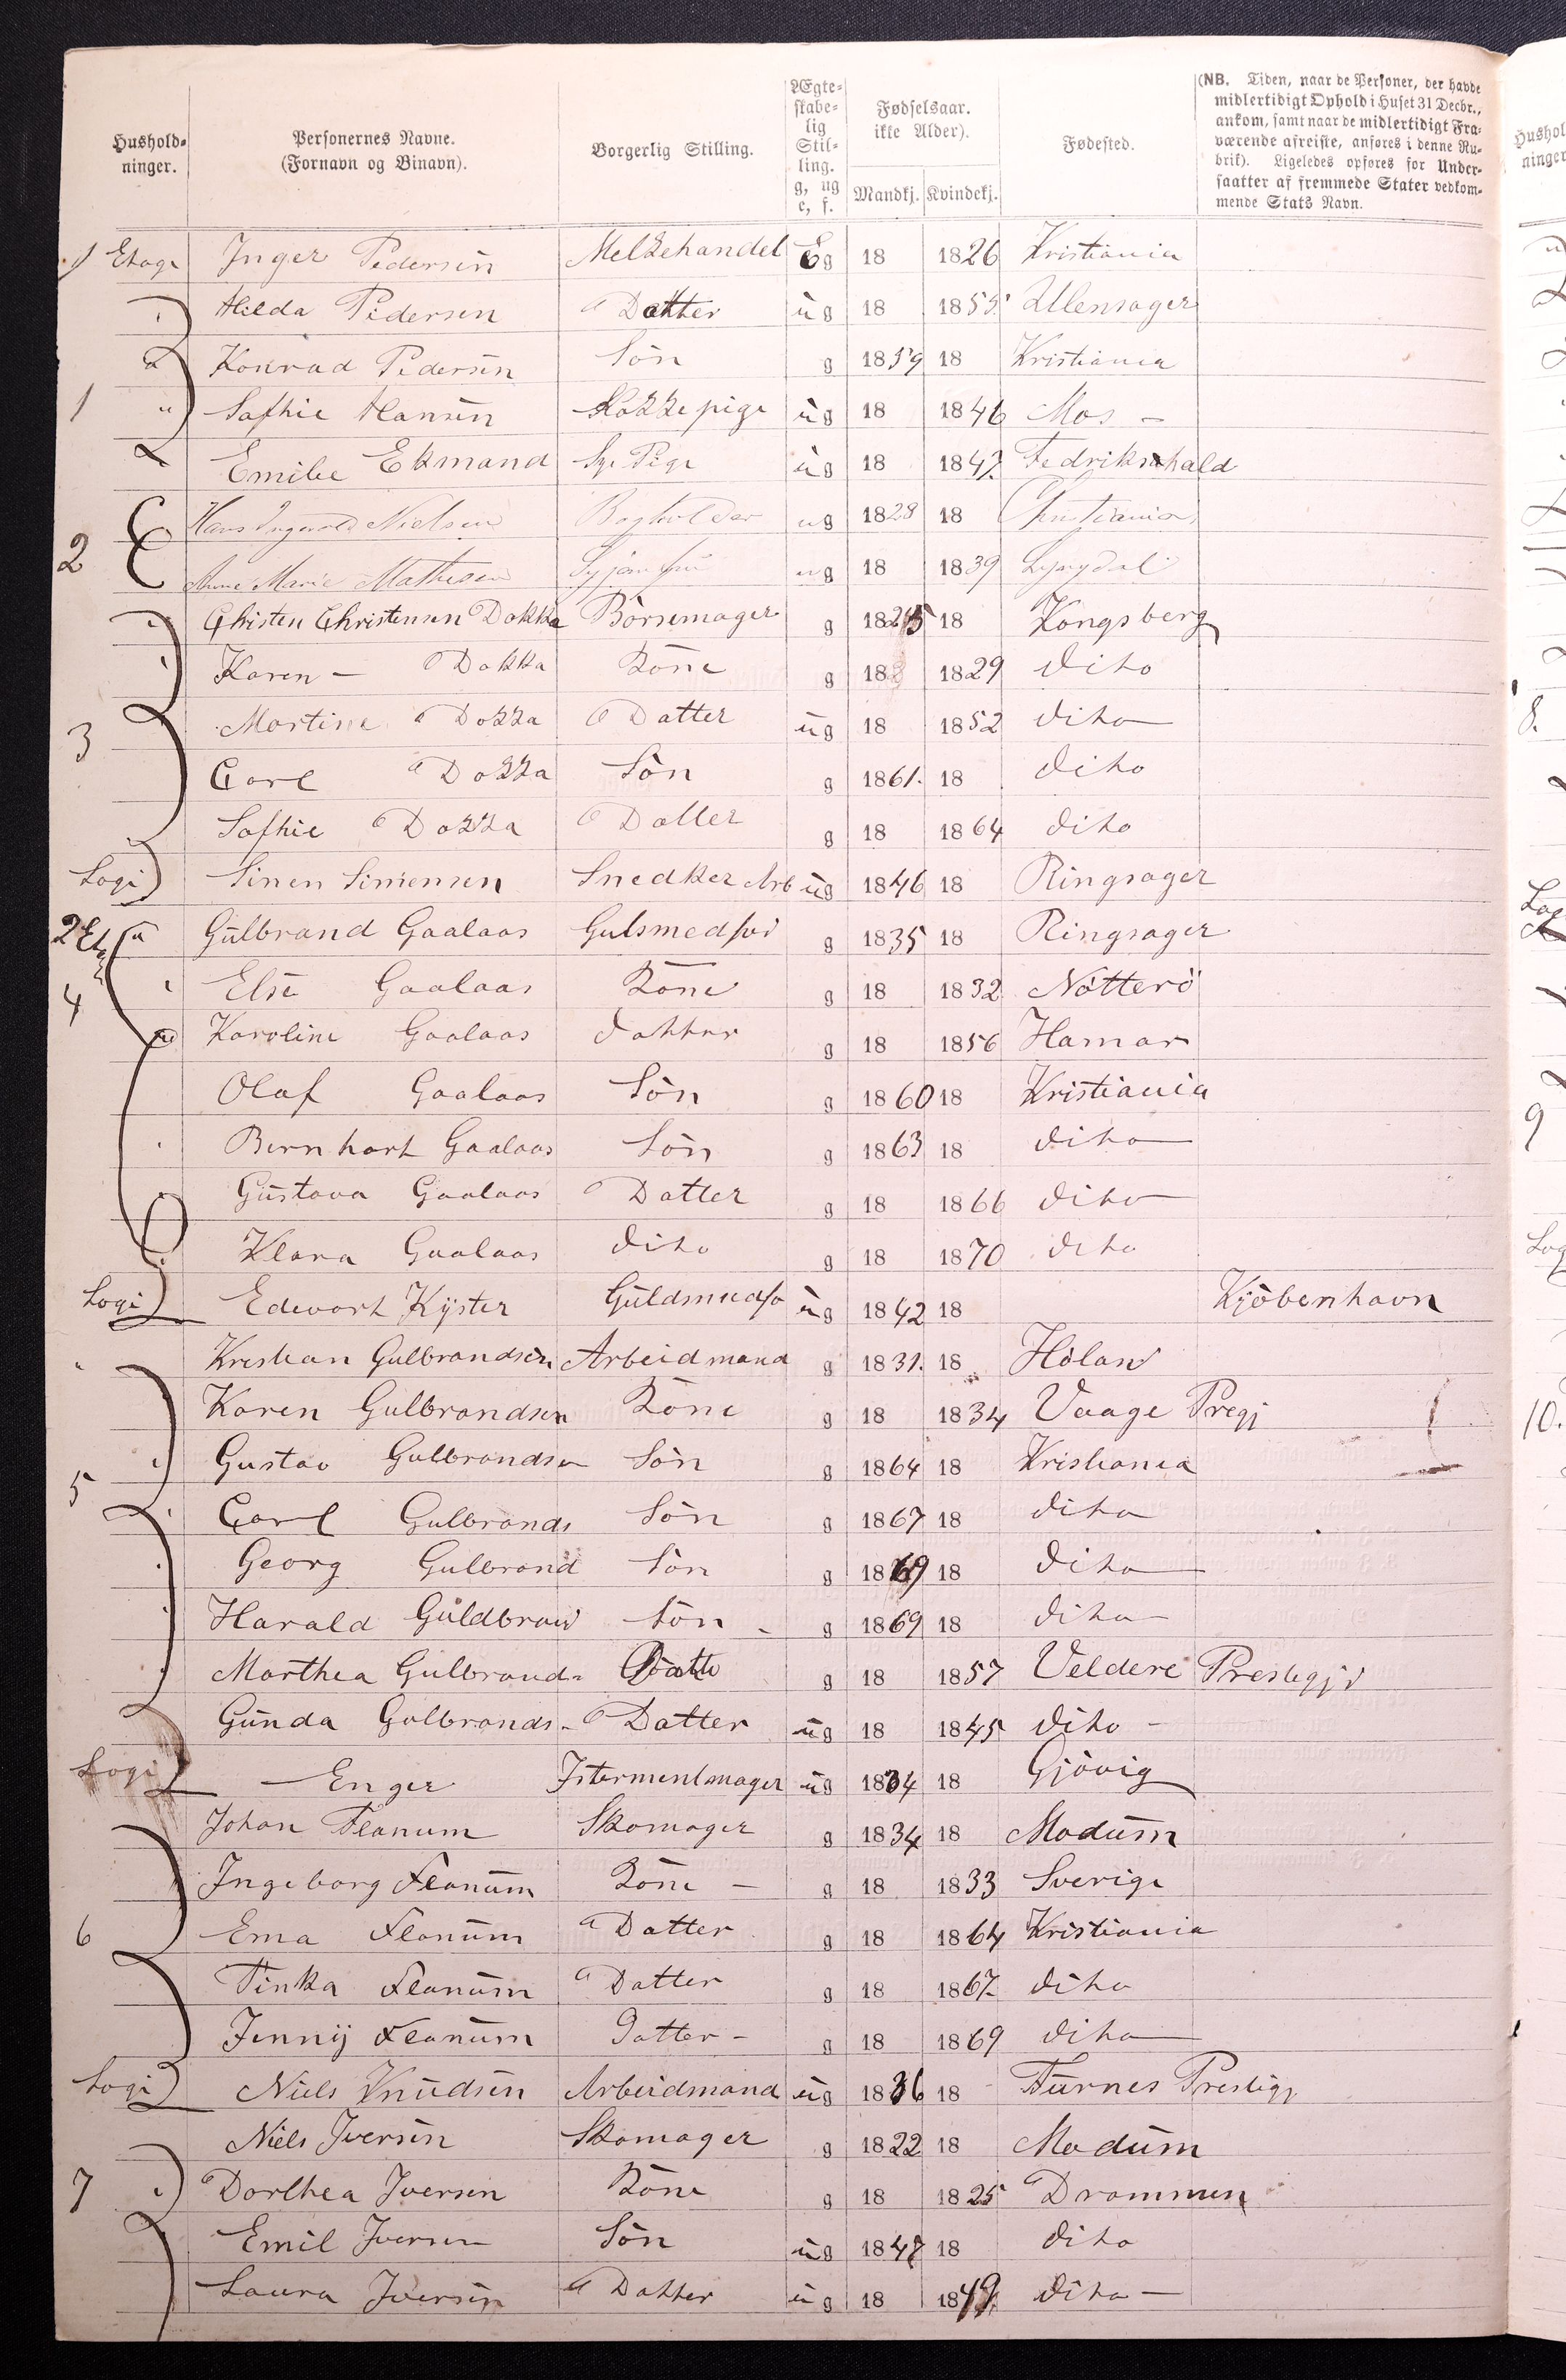 Hushold-ninger. Personernes Navne. (Fornavn og Binavn). Borgerlig Stilling. Ægte-skabe-lig Stil-ling. g, ug e, f. Fødselsaar. ikke Alder). Mandkj. Kvindekj. Fødested. (NB. Tiden, naar de Personer, der havde midlertidigt Ophold i Huset 31 Decbr., ankom, samt naar de midlertidigt Fra-værende afreiste, anføres i denne Ru-brik). Ligeledes opføres for Under-saatter af fremmede Stater vedkom-mende Stats Navn.
1 Etage Inger Pedersen Melkehandel Eg 18 1826 Kristiania
Hilda Pedersen Datter ug 18 1855 Ullensager
Konrad Pedersen Sön g 1859 18 Kristiania
1 Sofhie Hansen Kokkepige ug 18 1846 Mos -
Emilie Ekmand Sye Pige ug 18 1847. Fedrikshald
Hans Ingvald Nielsen Bogholder ug 1828 18 Christiania
2 Anne Marie Mathesen Syjomfru ug 18 1839 Lyngdal
Christen Christensen Dokka Börsemager g 1825 18 Kongsberg
Karen - Dokka Kone g 18 1829 dito
3 Martine Dokka Datter ug 18 1852 dito
Carl Dokka Sön g 1861. 18 dito
Sofhie Dokka Datter g 18 1864 dito
Logi Sinen Simensen Snedker Arb ug 1846 18 Ringsager
2 Etage Gulbrand Gaalaas Gulsmedsv g 1835 18 Ringsager
4 Else Gaalaas Kone g 18 1832 Nötterö
Karoline Gaalaas datter g 18 1856 Hamar
Olaf Gaalaas Sön g 1860 18 Kristiania
Bernhart Gaalaas Sön g 1863 18 dito
Gustava Gaalaas Datter g 18 1866 dito
Klara Gaalaas dito g 18 1870 dito
Logi Edevart Kyster Guldsmedsv ug 1842 18 Kjöbenhavn
Kristian Gulbrandsen Arbeidmand g 1831. 18 Höland
Karen Gulbrandsen Kone g 18 1834 Vaage Pregj
5 Gustav Gulbrandsen Sön g 1864 18 Kristiania
Carl Gulbrands Sön g 1867 18 dito
Georg Gulbrand Sön g 1869 18 dito
Harald Guldbrand Sön - g 1869 18 dito
Marthea Gulbrand- Datte g 18 1857 Veldere Prestegjd
Gunda Gulbrands- Datter ug 18 1845 dito -
Logi - Enger Istermentmager ug 1834 18 Gjövig
Johan Flanum Skomager g 1834 18 Modum
Ingeborg Flanum Kone - g 18 1833 Sverige
6 Ema Flanum Datter g 18 1864 Kristiania
Tinka Flanum Datter g 18 1867. dito
Jenny Flanum Datter - g 18 1869 dito
Logi Niels Knudsen Arbeidmand ug 1836 18 Furnes Prestigj
Niels Iversen Skomager g 1822 18 Modum
7 Dorthea Iversen Kone g 18 1825 Drammen
Emil Iversen Sön ug 1847 18 dito
Laura Iversen Datter ug 18 1849 dito -